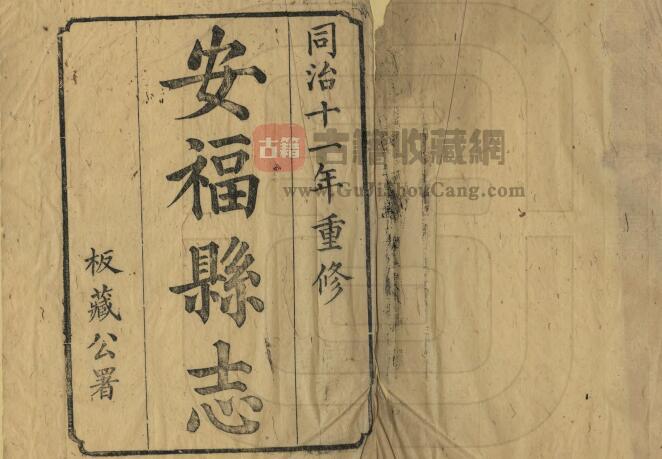 同治十一年重修
安福縣志
板藏公署
古籍
古籍收藏網
www.GuJiShouCang.com